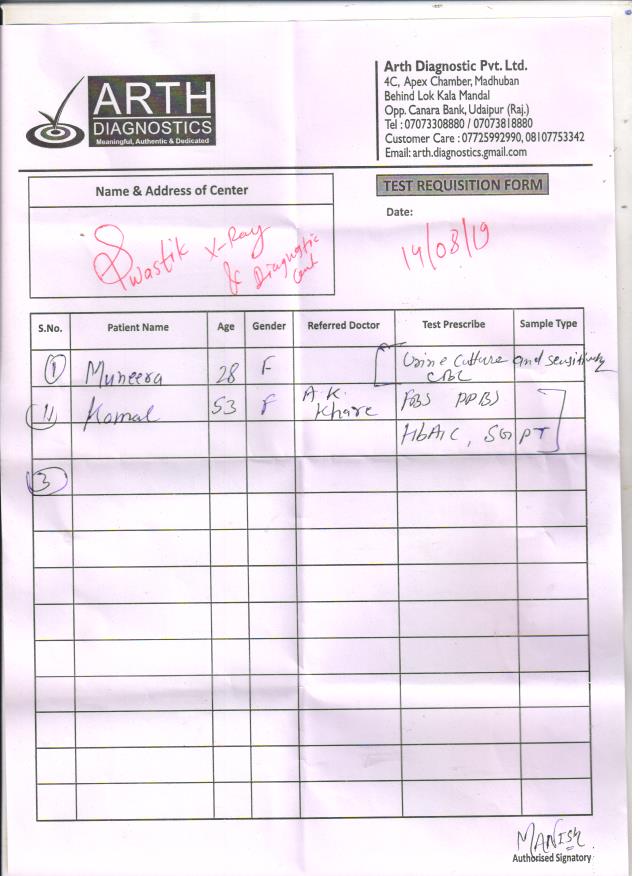 ARTH
DIAGNOSTICS
Meaningful, Authentic & Dedicated
Arth Diagnostic Pvt. Ltd.
4C, Apex Chamber, Madhuban
Behind Lok Kala Mandal
Opp. Canara Bank, Udaipur (Raj.)
Tel : 07073308880 / 07073818880
Customer Care : 07725992990, 08107753342
Email: arth.diagnostics.gmail.com
Name & Address of Center
TEST REQUISITION FORM
Date:
14/08/19
Swastik X-Ray
& Diagnostic
Cent
S.No. Patient Name Age Gender Referred Doctor Test Prescribe Sample Type
1 Muneera 28 F Urine Culture and sensitivity
CBC
11 Komal 53 F A.K. Khare FBS PPBS
HbA1C, SGPT
3
MANISH
Authorised Signatory